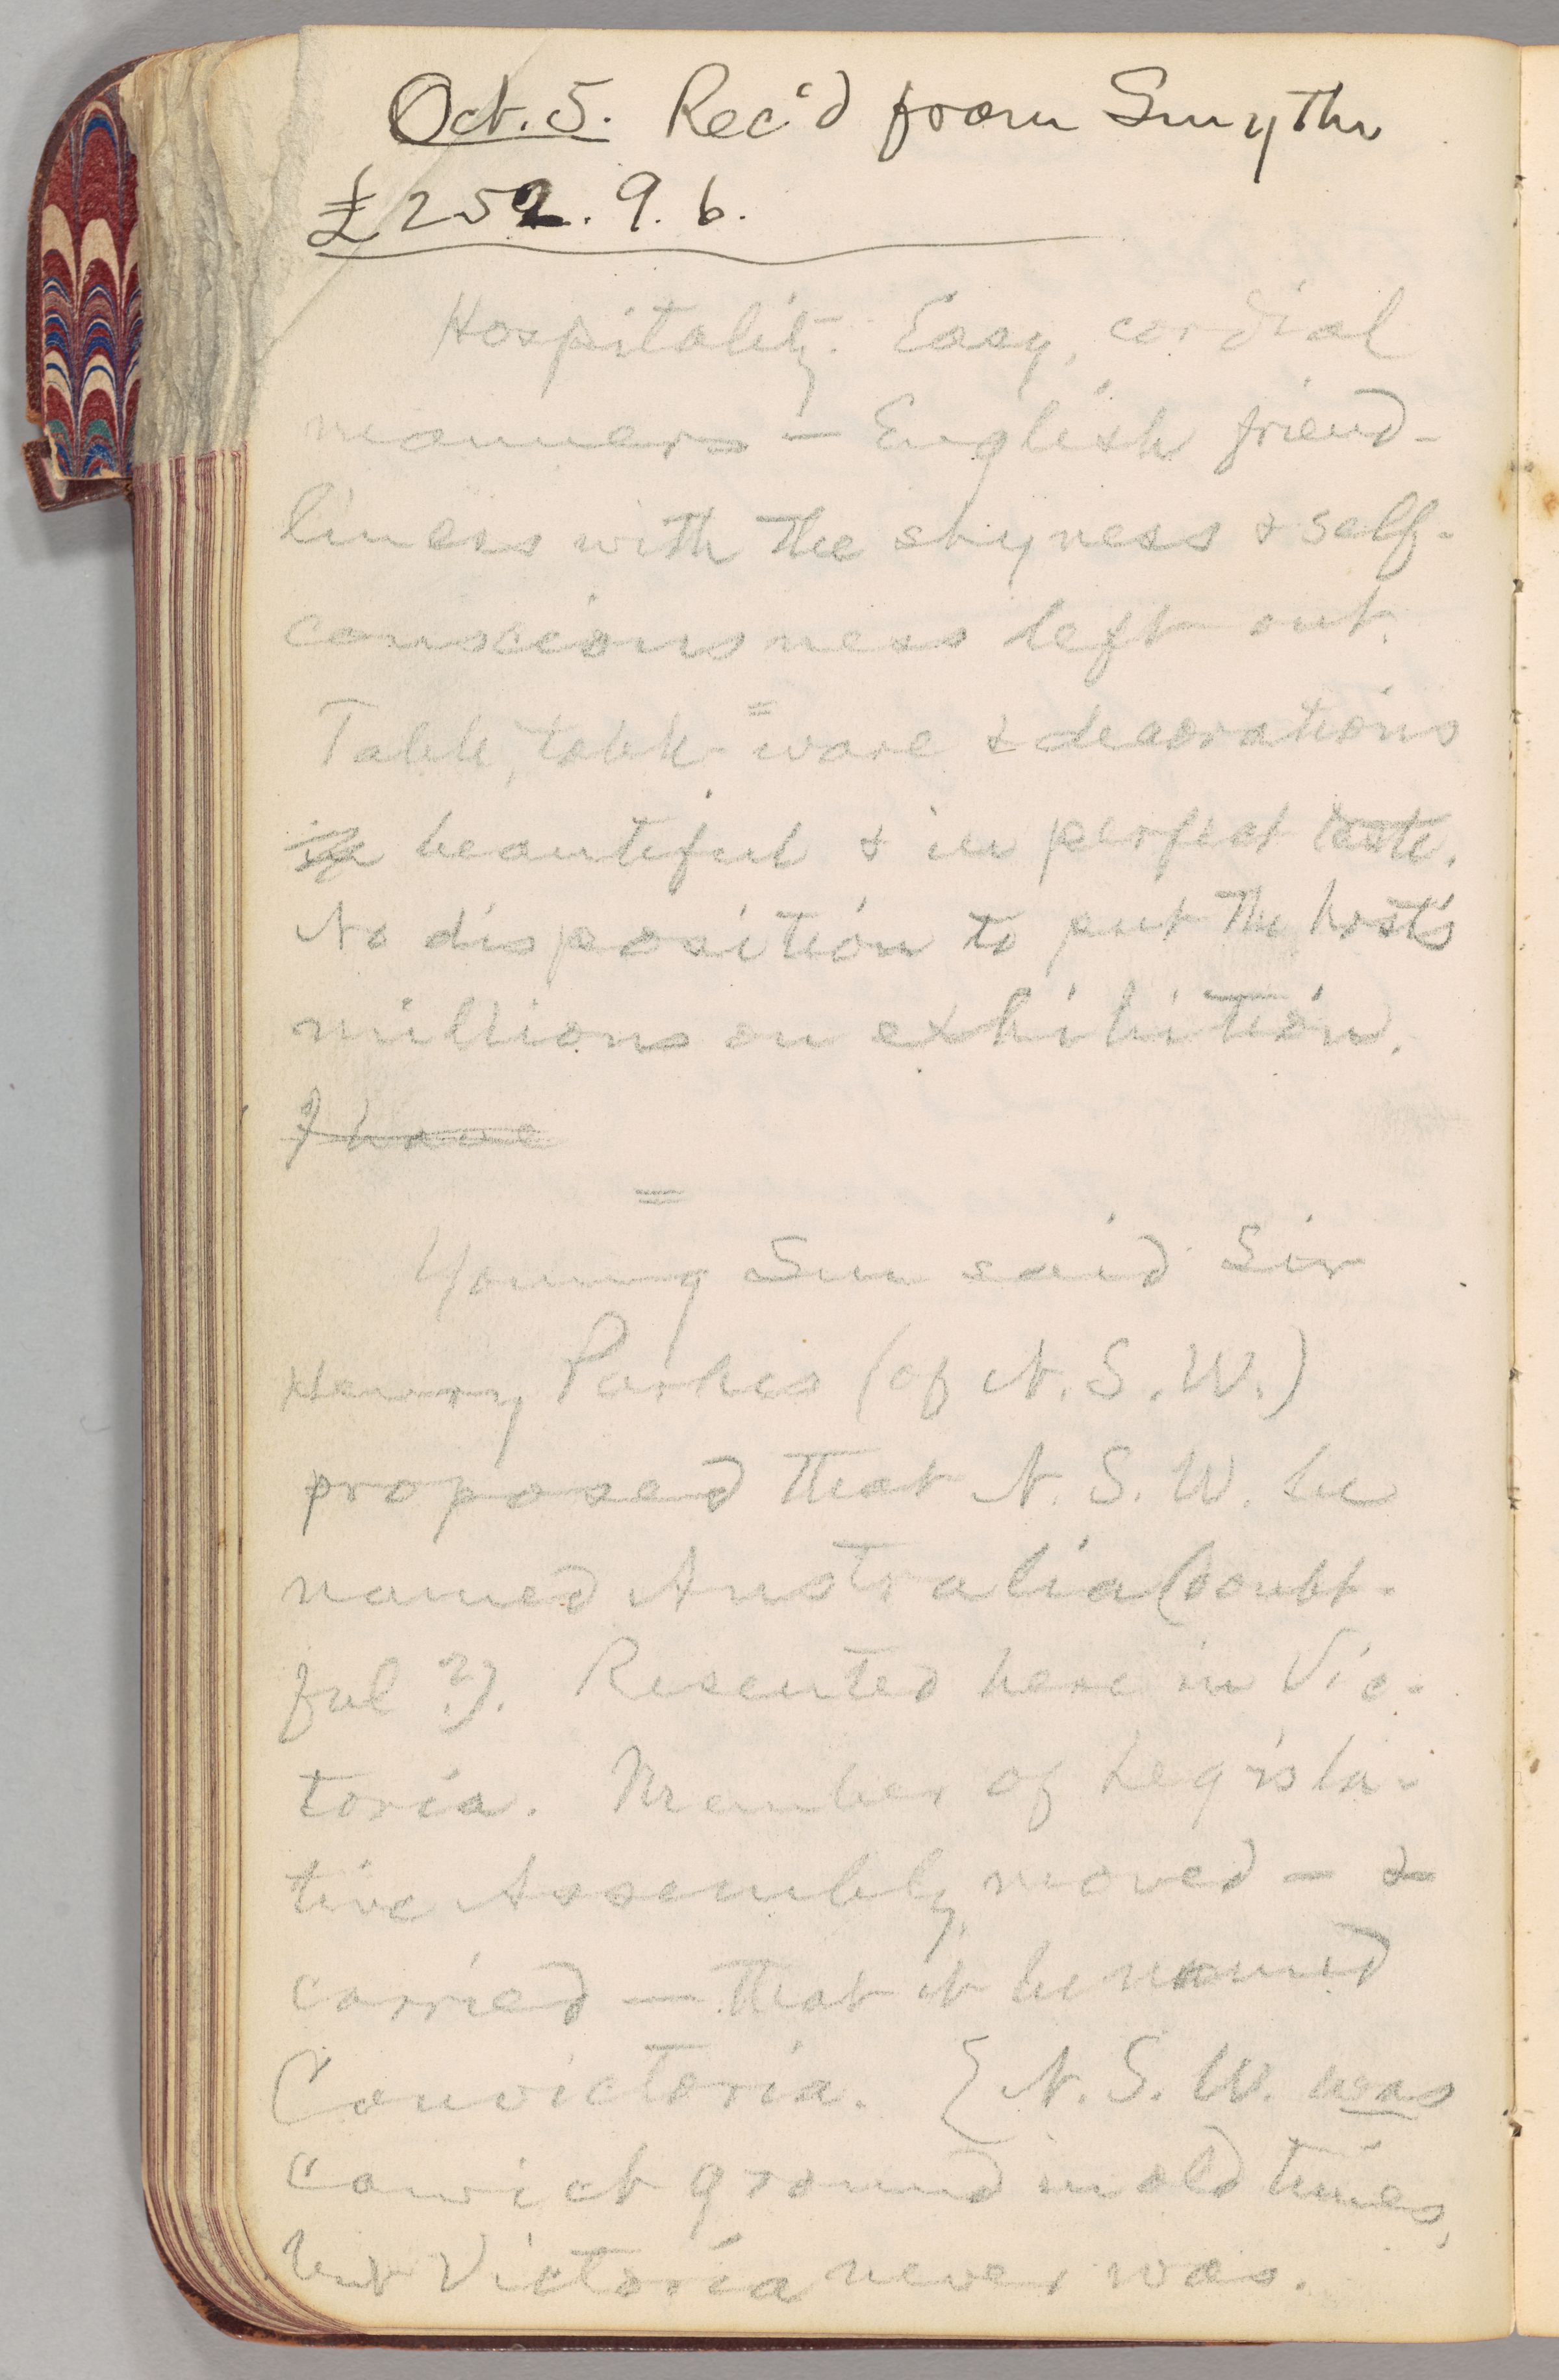 Oct. 5. Rec'd from Smythe
£252. 9. 6.
Hospitality. Easy, cordial
manners — English friend-
liness with the shyness & self-
consciousness left out.
Table, table-ware & decorations
beautiful & in perfect taste.
No disposition to put the host's
millions on exhibition.
I have
=
Young Sun said Sir
Henry Parkes (of N. S. W.)
proposed that N. S. W. be
named Australia (Doubt-
ful ?). Resented here in Vic-
toria. Member of Legisla-
tive Assembly moved — &
carried — that it be named
Convictoria. { N. S. W. was
convict ground in old times,
but Victoria never was.